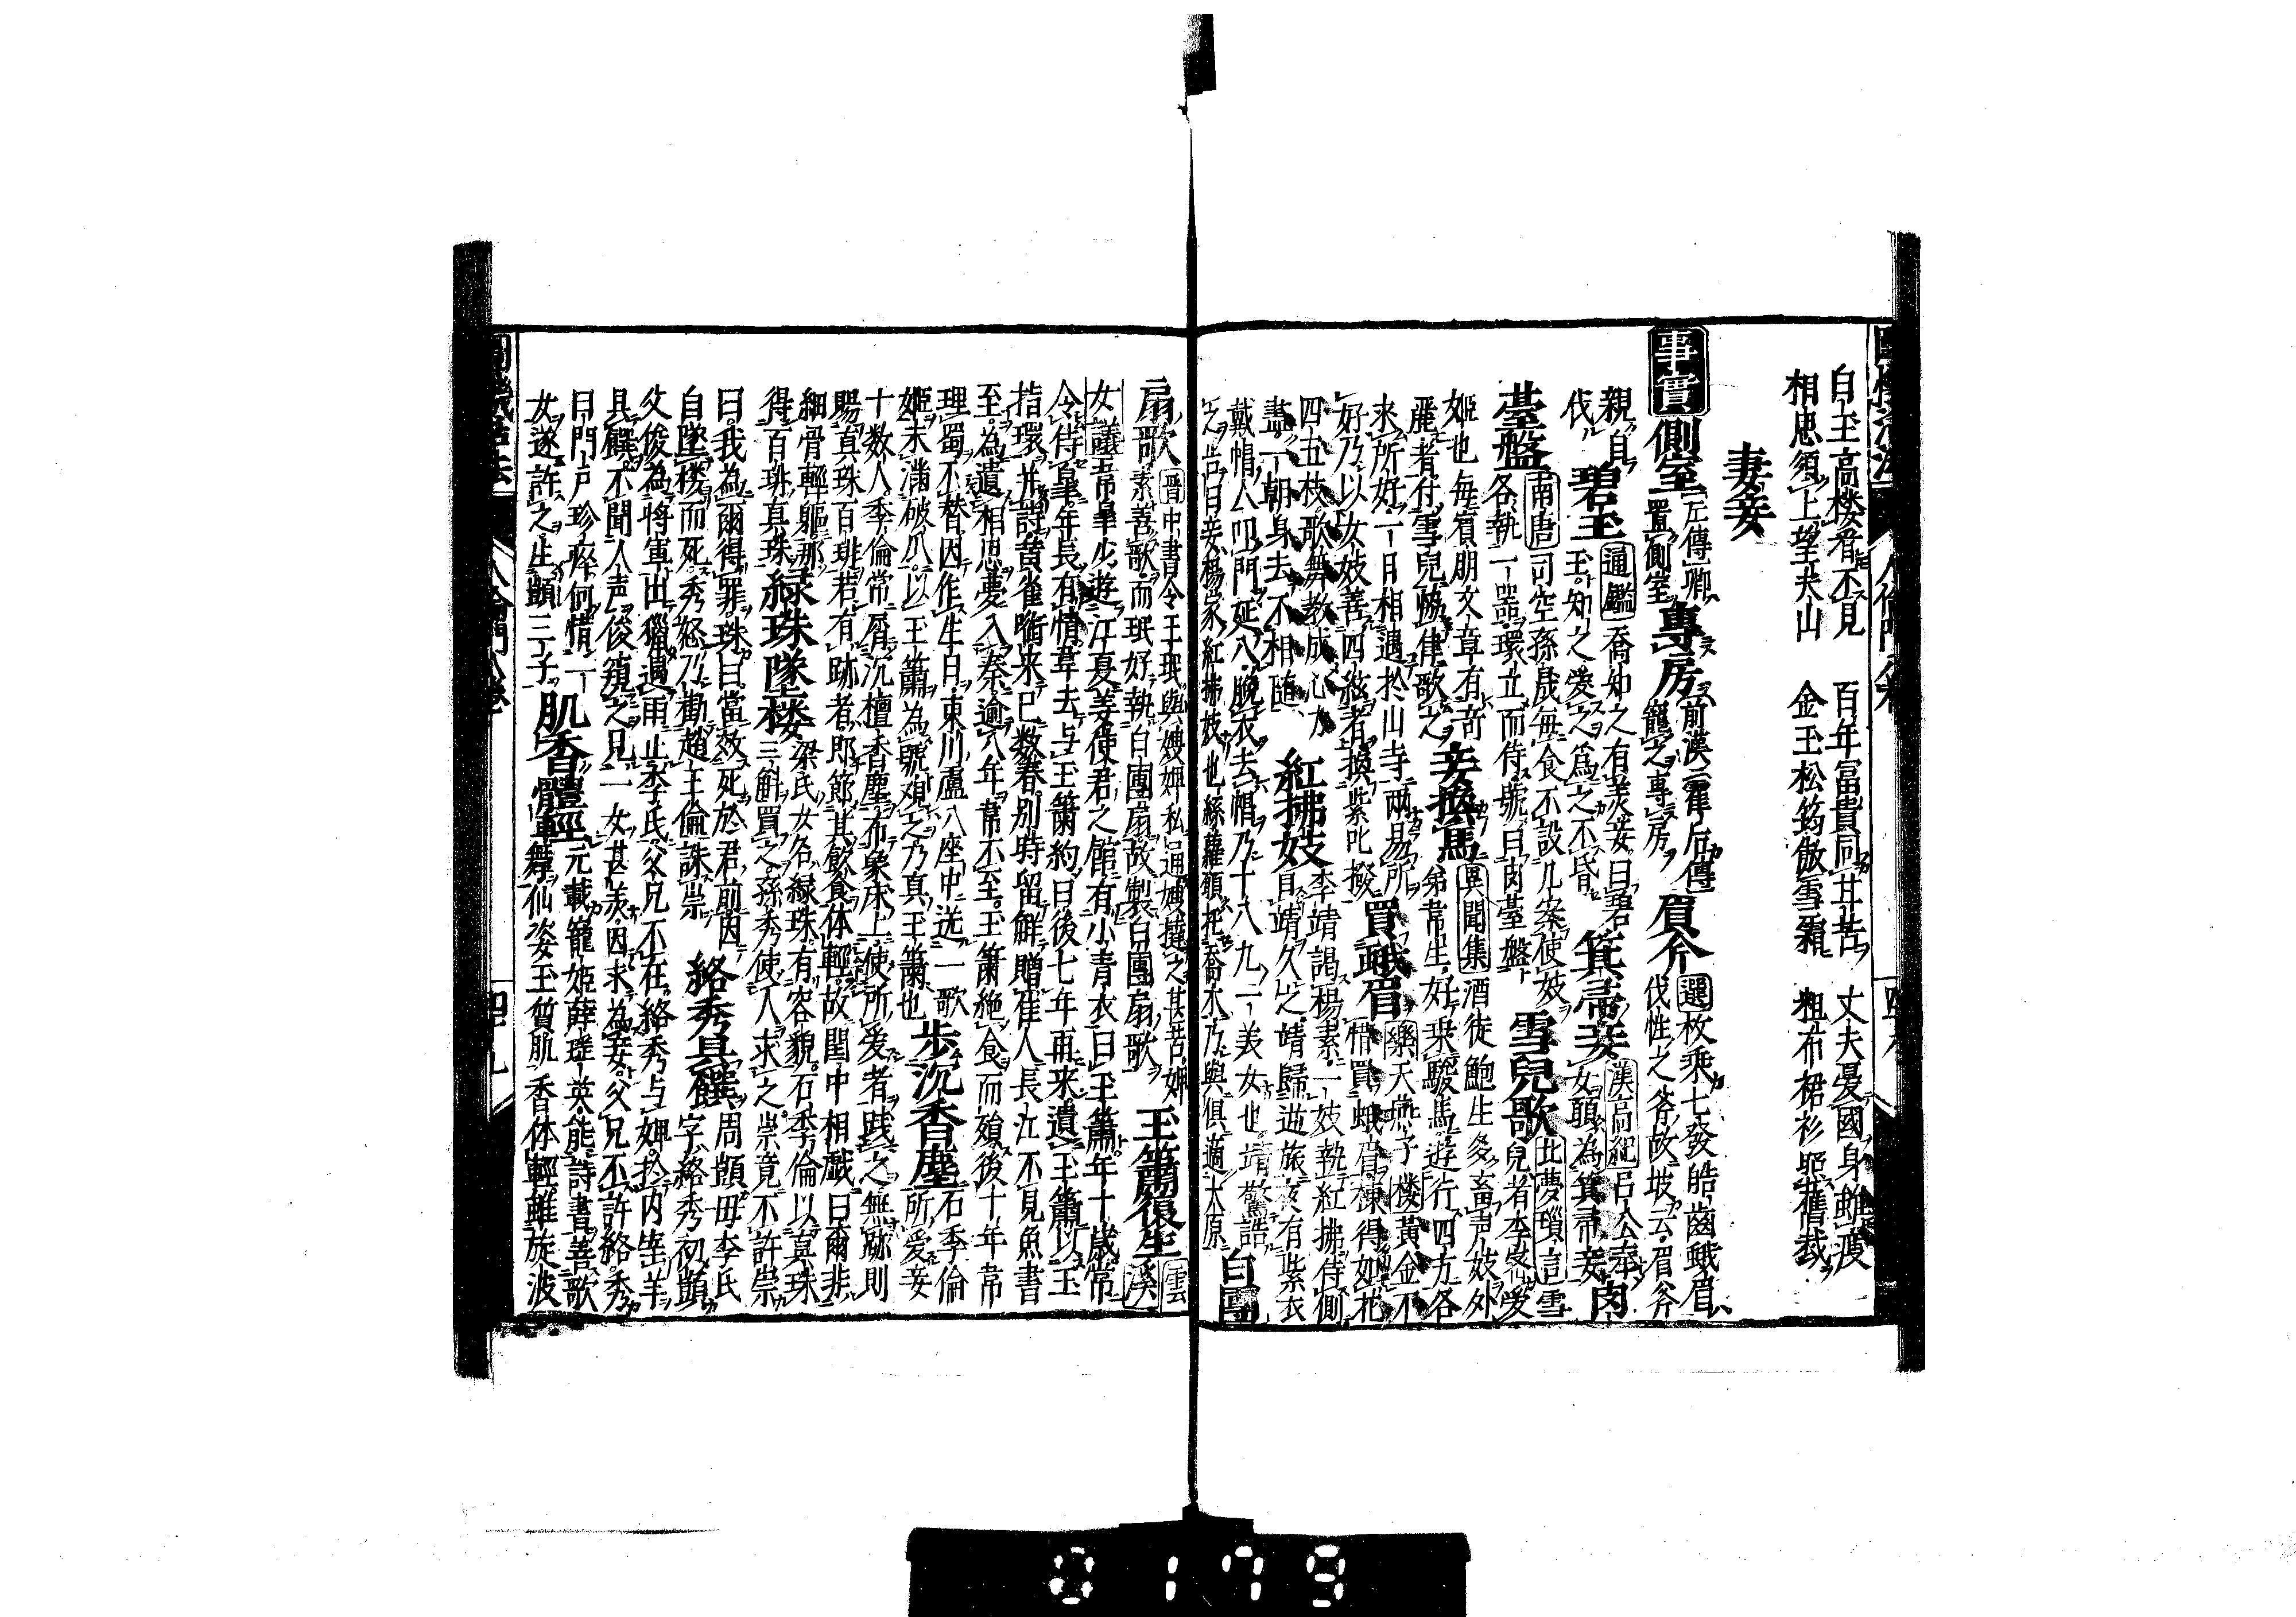 白玉高楼看不見　百年富貴同甘苦　丈夫憂國身雖瘦
相思須上望夫山　金玉松筠傲雪霜　粗布裙衫照舊裁
妻妾
事實 側室 左傳卿置側室 專房 前漢霍后傳寵之專房 眉斧 選枚乘七發皓齒蛾眉伐性之斧故坡云眉斧
親自伐 碧玉 通鑑喬知之有美妾曰碧玉知之愛之爲之不昏 箕帚妾 漢高紀呂公奉女願為箕帚妾 肉
臺盤 南唐司空孫晟每食不設几案使妓各執一器環立而侍號曰肉臺盤 雪兒歌 北夢瑣言雪兒者李密愛
姬也每賓朋文章有奇麗者付雪兒協律歌之 妾換馬 異聞集酒徒鮑生多畜声妓外弟常生好乗駿馬遊行四方各
求所好一日相遇於山寺兩易所好乃以女妓善四絃者換紫叱撥 買蛾眉 樂天燕子楼黃金不惜買蛾眉揀得如花
四五枝歌舞教成心力盡一朝身去不相随 紅拂妓 李靖謁楊素一妓執紅拂侍側目靖久之靖歸逆旅夜有紫衣
戴帽人叩門延入脱衣去帽乃十八九一美女也靖驚詰之告曰妾楊家紅拂妓也絲蘿願托喬木乃與俱適太原 白團
扇歌 晋中書令王珉與嫂婢私通嫂撻之甚苦婢素善歌而珉好執白團扇故製白團扇歌 玉簫復生 雲溪
女議韋皐少遊江夏姜使君之館有小青衣曰玉簫年十歲常
令侍皐年長有情韋去与玉簫約曰後七年再来遺玉簫以玉
指環并詩黄雀啣来已数春別時留解贈佳人長江不見魚書
至為遺相思夢入秦逾八年常不至玉簫絶食而殞後十年韋
理蜀不替因作生日東川盧八座中送一歌
姬未滿破瓜以玉簫為號觀之乃真玉簫也 步沉香塵 石季倫所愛妾
十数人季倫常屑沉檀香塵布象床上使所爱者践之無跡則
賜真珠百琲若有跡者即節其飲食体輕故閨中相戲曰爾非
細骨輕軀那得百琲真珠 緑珠墜楼 梁氏女名緑珠有容貌石季倫以真珠三斛買之孫秀使人求之崇竟不許崇
曰我為爾得罪珠曰當效死於君前因
自墜楼而死秀怒乃勸趙王倫誅崇 絡秀具饌 周顗母李氏字絡秀初顗
父俊為將軍出獵遇雨止李氏父兄不在絡秀与婢於内宰羊
具饌不聞人声俊窺之見一女甚美因求為妾父兄不許絡秀
曰門戸珍瘁何惜一女遂許之生顗三子 肌香體輕 元載籠姬薛瑤英能詩書善歌舞仙姿玉質肌香体輕雖旋波
四九
0179